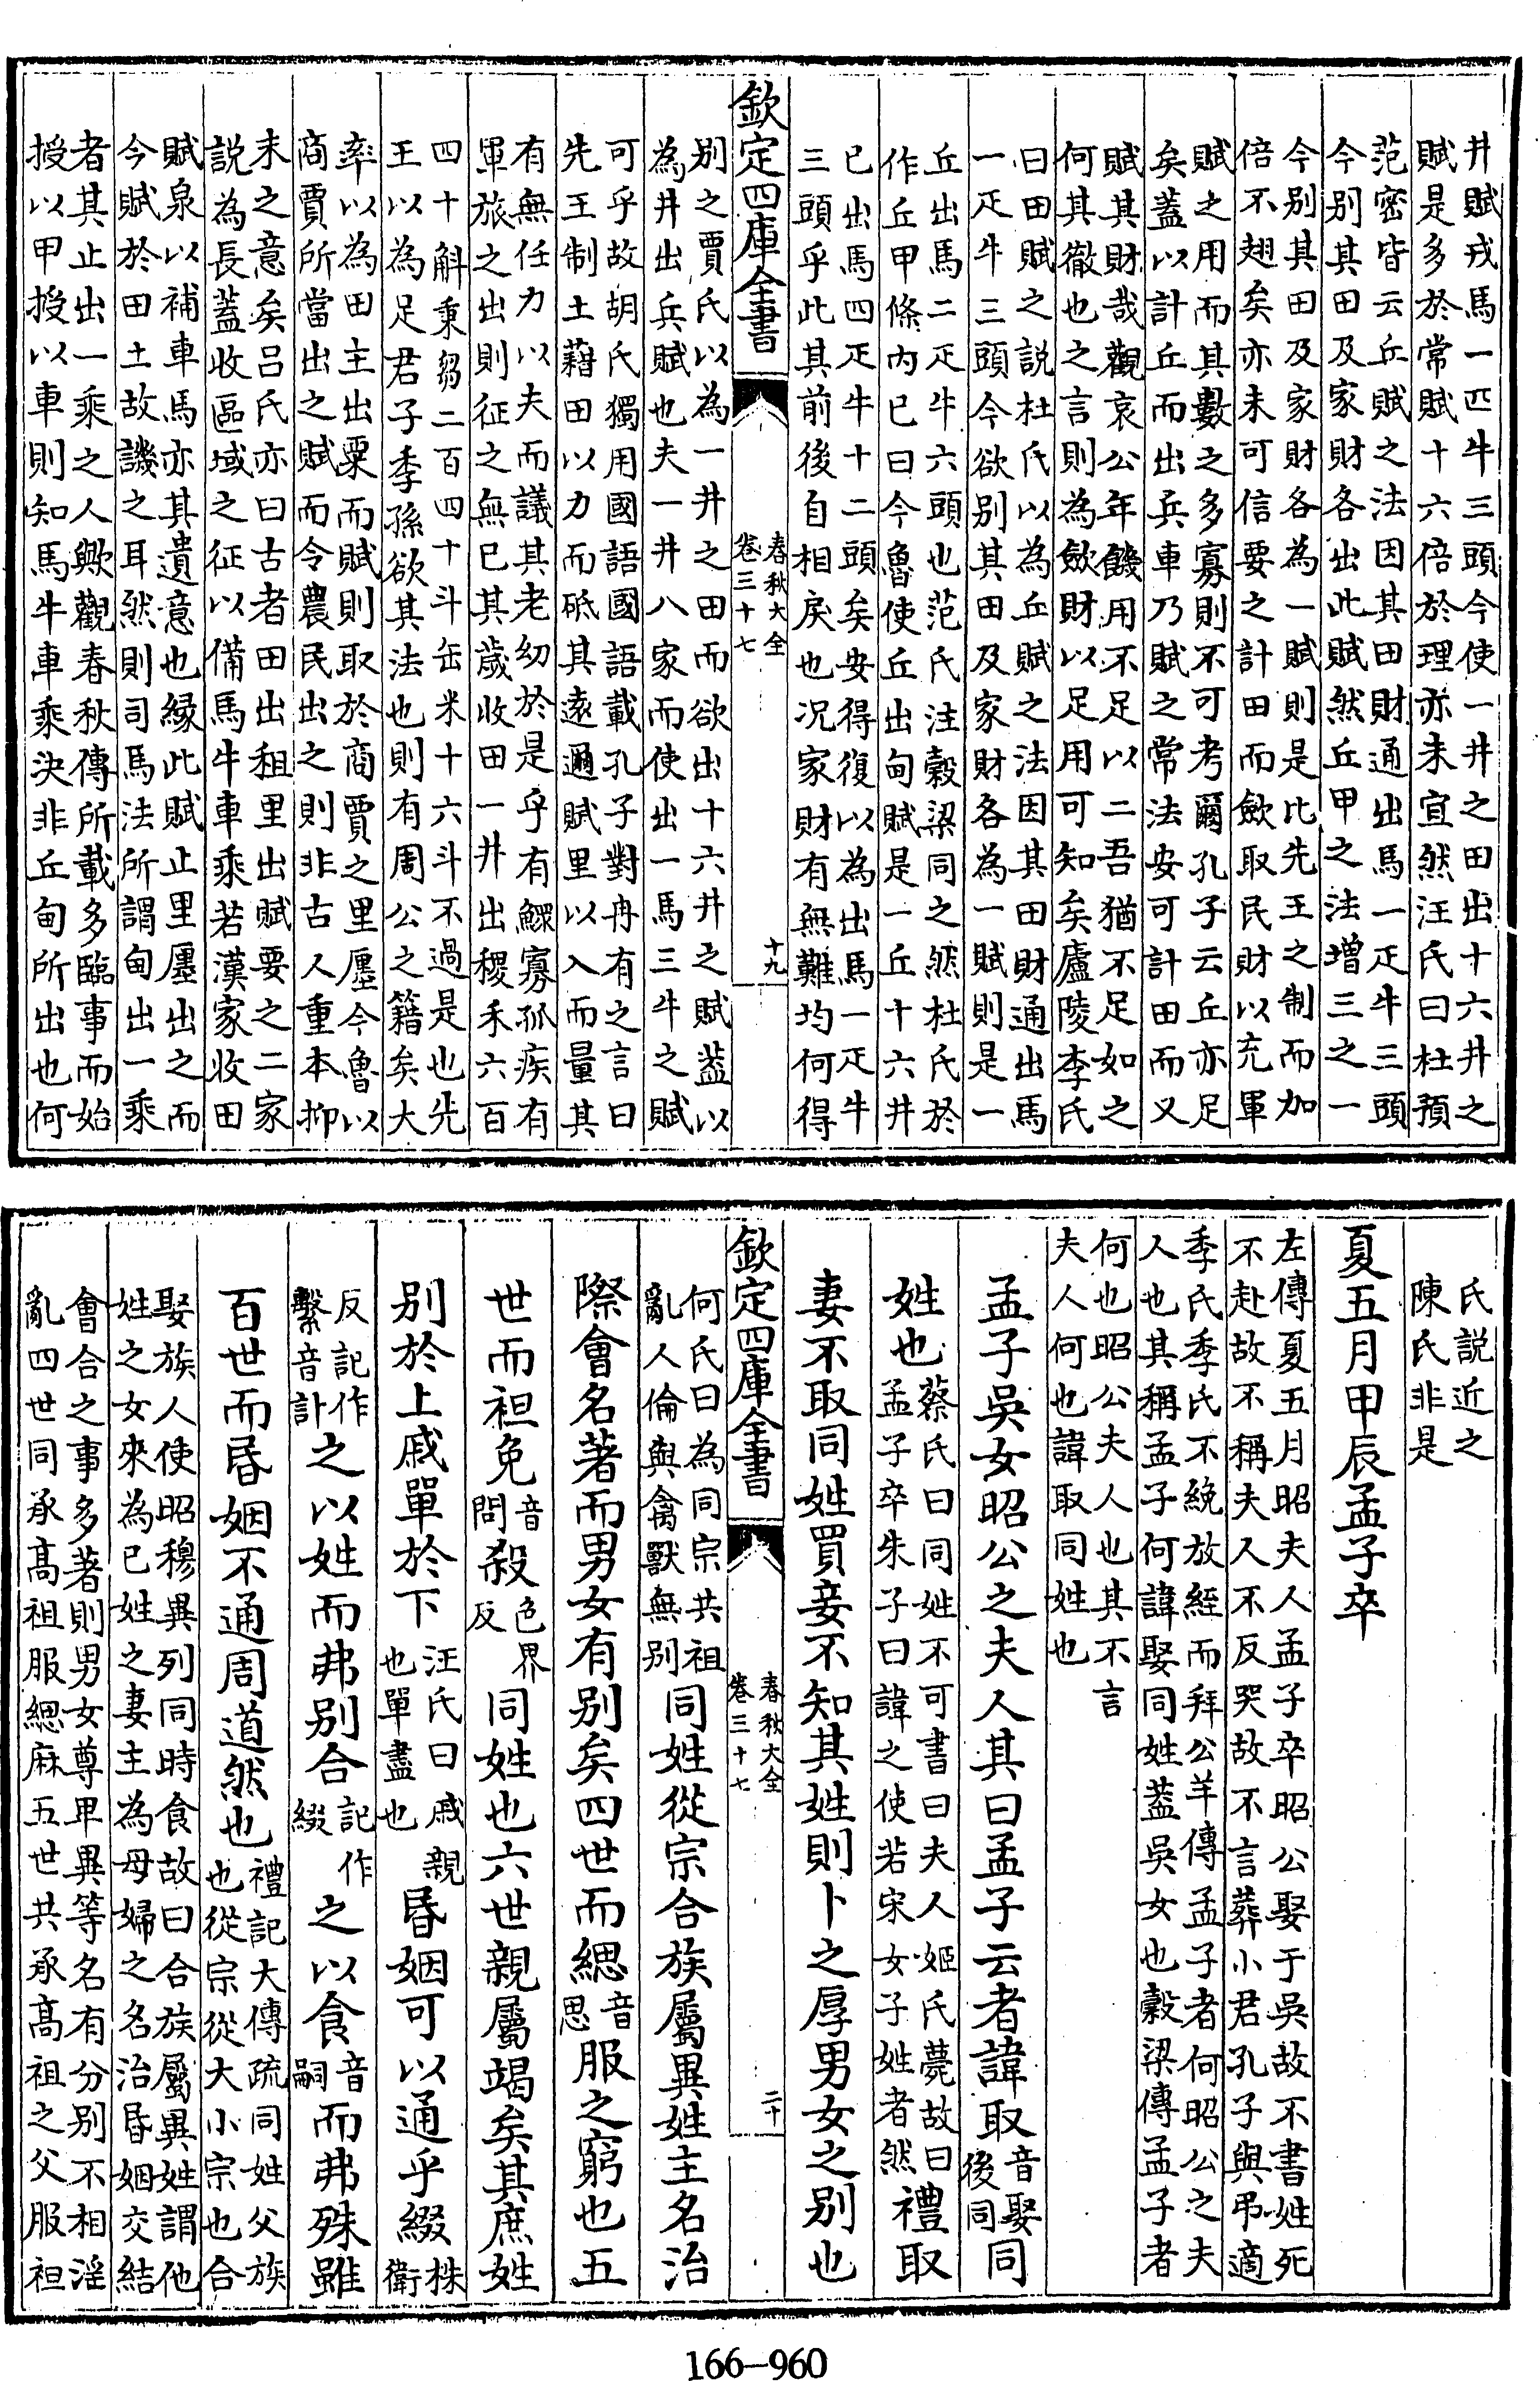 井賦戎馬一匹牛三頭今使一井之田出十六井之
賦是多於常賦十六倍於理亦未宜然汪氏曰杜預
范寗皆云丘賦之法因其田財通出馬一疋牛三頭
今别其田及家財各出此賦然丘甲之法增三之一
今别其田及家財各為一賦則是比先王之制而加
倍不翅矣亦未可信要之計田而歛取民財以充軍
賦之用而其數之多寡則不可考爾孔子云丘亦足
矣蓋以計丘而出兵車乃賦之常法安可計田而又
賦其財哉觀哀公年饑用不足以二吾猶不足如之
何其徹也之言則為歛財以足用可知矣廬陵李氏
曰田賦之説杜氏以為丘賦之法因其田財通出馬
一疋牛三頭今欲别其田及家財各為一賦則是一
丘出馬二疋牛六頭也范氏注穀梁同之然杜氏於
作丘甲條内已曰今魯使丘出甸賦是一丘十六井
已出馬四疋牛十二頭矣安得復以為出馬一疋牛
三頭乎此其前後自相戾也况家財有無難均何得
欽定四庫全書
春秋大全
卷三十七
十九
别之賈氏以為一井之田而欲出十六井之賦蓋以
為井出兵賦也夫一井八家而使出一馬三牛之賦
可乎故胡氏獨用國語國語載孔子對冉有之言曰
先王制土藉田以力而砥其逺邇賦里以入而量其
有無任力以夫而議其老幼於是乎有鰥寡孤疾有
軍旅之出則征之無已其歲收田一井出稷禾六百
四十斛秉芻二百四十斗缶米十六斗不過是也先
王以為足君子季孫欲其法也則有周公之籍矣大
率以為田主出粟而賦則取於商賈之里廛今魯以
商賈所當出之賦而令農民出之則非古人重本抑
末之意矣吕氏亦曰古者田出租里出賦要之二家
説為長蓋收區域之征以備馬牛車乘若漢家收田
賦泉以補車馬亦其遺意也縁此賦止里廛出之而
今賦於田土故譏之耳然則司馬法所謂甸出一乘
者其止出一乘之人歟觀春秋傳所載多臨事而始
授以甲授以車則知馬牛車乘決非丘甸所出也何
氏説近之
陳氏非是
夏五月甲辰孟子卒
左傳夏五月昭夫人孟子卒昭公娶于吳故不書姓死
不赴故不稱夫人不反哭故不言葬小君孔子與弔適
季氏季氏不絻放絰而拜公羊傳孟子者何昭公之夫
人也其稱孟子何諱娶同姓蓋吳女也穀梁傳孟子者
何也昭公夫人也其不言
夫人何也諱取同姓也
孟子吳女昭公之夫人其曰孟子云者諱取音娶後同同
姓也蔡氏曰同姓不可書曰夫人姬氏薨故曰孟子卒朱子曰諱之使若宋女子姓者然禮取
妻不取同姓買妾不知其姓則卜之厚男女之别也
欽定四庫全書
春秋大全
卷三十七
二十
何氏曰為同宗共祖亂人倫與禽獸無别同姓從宗合族屬異姓主名治
際會名著而男女有别矣四世而緦音思服之窮也五
世而袒免音問殺色界反同姓也六世親屬竭矣其庶姓
别於上戚單於下汪氏曰戚親也單盡也昏姻可以通乎綴株衛
反記作繫音計之以姓而弗别合記作綴之以食音嗣而弗殊雖
百世而昏姻不通周道然也禮記大傳疏同姓父族也從宗從大小宗也合
娶族人使昭穆異列同時食故曰合族屬異姓謂他
姓之女來為已姓之妻主為母婦之名治昏姻交結
會合之事多著則男女尊卑異等名有分别不相淫
亂四世同承髙祖服緦麻五世共承髙祖之父服袒
166-960